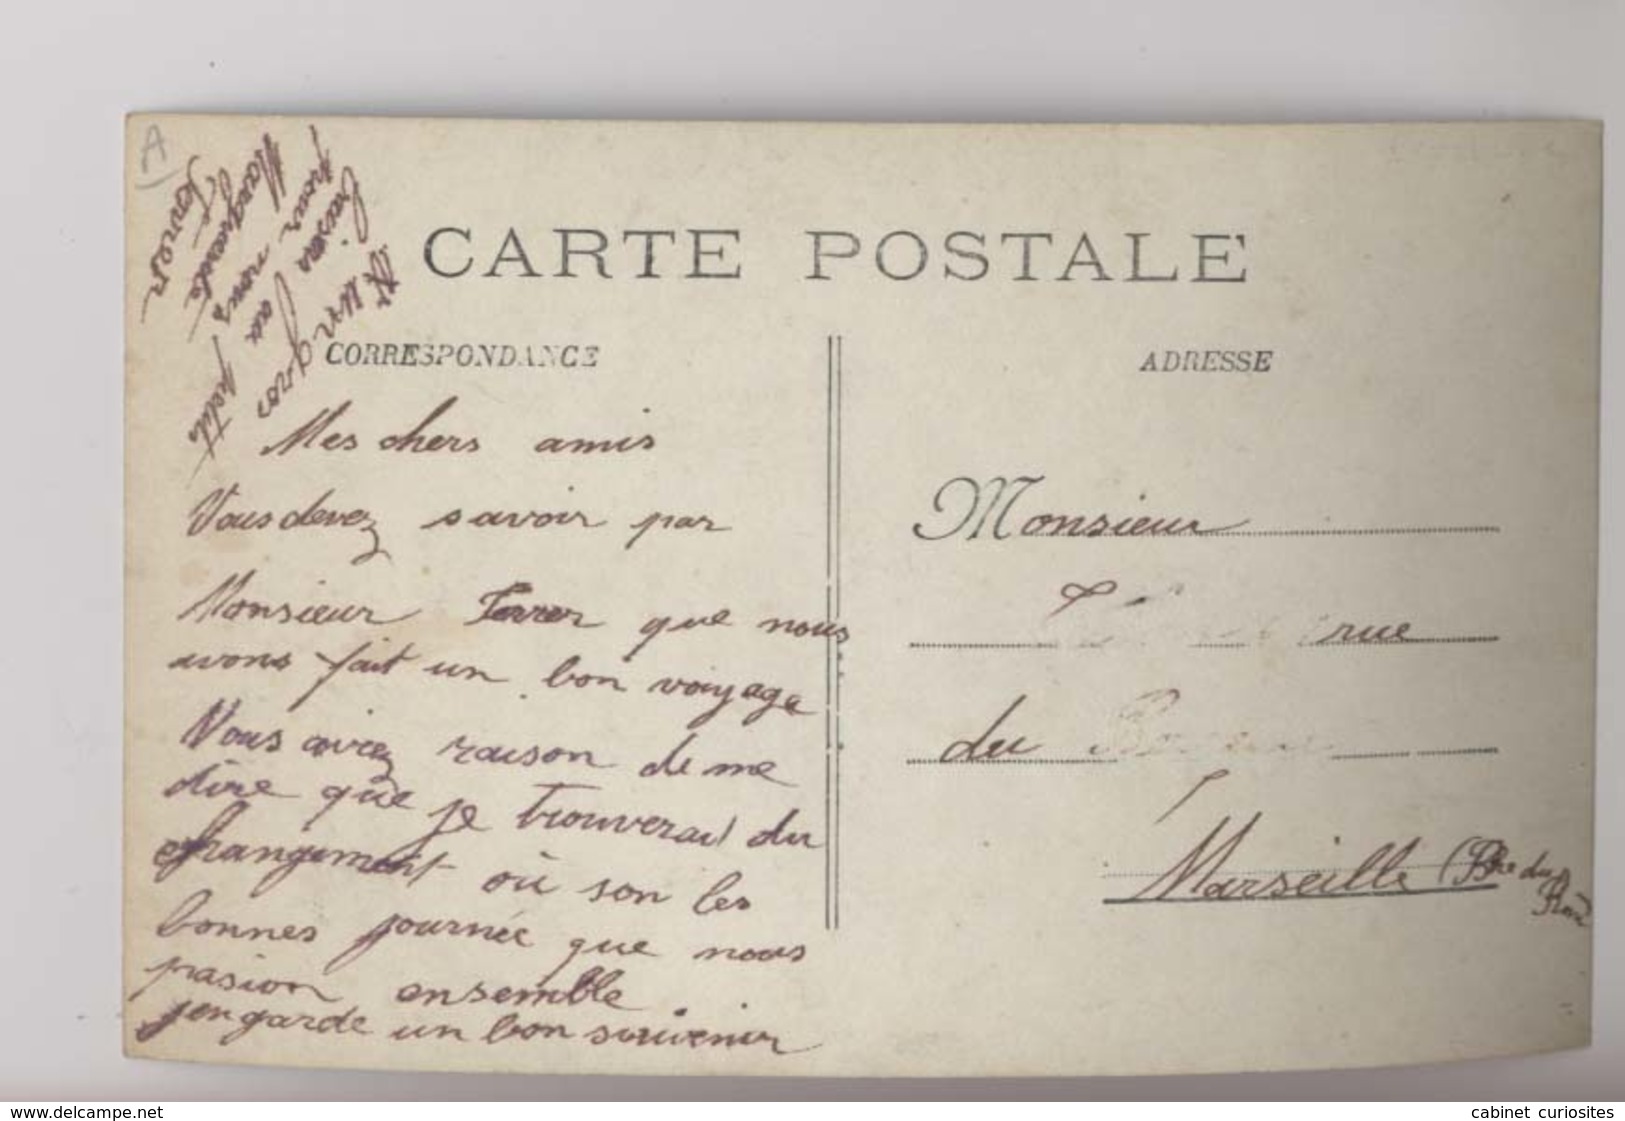 A
CARTE POSTALE
CORRESPONDANCE
ADRESSE
Mes chers amis
Vous devez savoir par
Monsieur Ferrer que nous
avons fait un bon voyage
Vous aviez raison de me
dire que je trouverai du
changement où son les
bonnes journée que nous
pasion ensemble
j'en garde un bon souvenir
un gros
baiser au
pour nous petits
Monsieur
rue
du
Marseille (Bhe du
Rhône
www.delcampe.net
cabinet curiosites